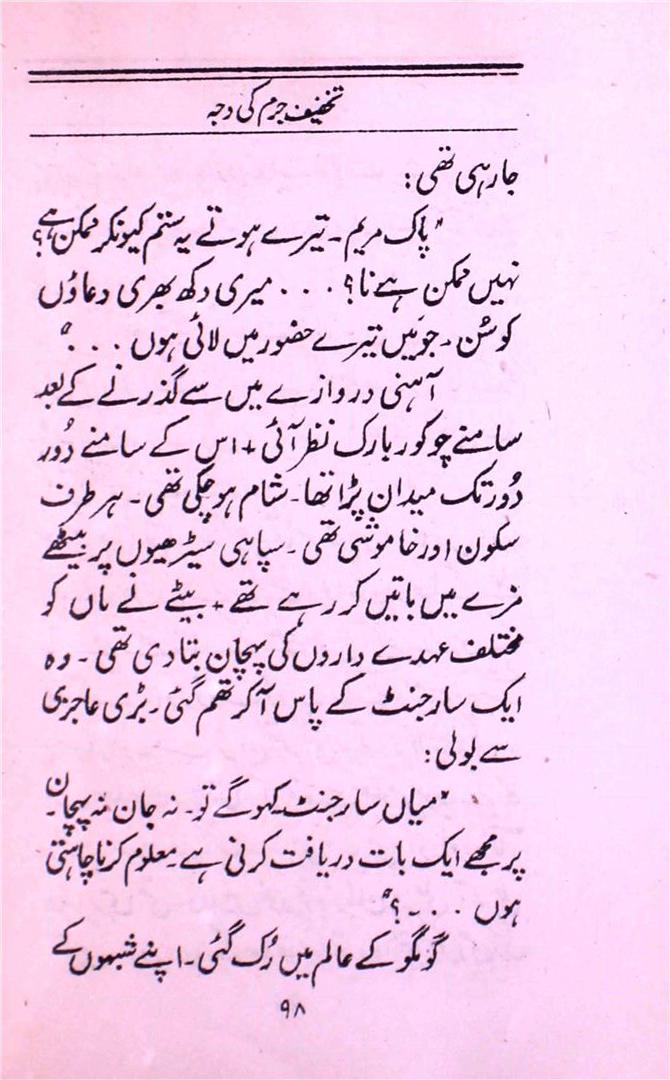 تخفیف جرم کی وجہ
جا رہی تھی :
"پاک مریم ۔ تیرے ہوتے یہ ستم کیونکر ممکن ہے؟
نہیں ممکن ہے نا؟ . . . میری دکھ بھری دعاؤں
کو سُن ۔ جو مَیں تیرے حضور میں لائی ہوں . . ."
آہنی دروازے میں سے گذرنے کے بعد
سامنے چوکور بارک نظر آئی + اس کے سامنے دُور
دُور تک میدان پڑا تھا ۔ شام ہو چکی تھی ۔ ہر طرف
سکون اور خاموشی تھی ۔ سپاہی سیڑھیوں پر بیٹھے
مزے میں باتیں کر رہے تھے + بیٹے نے ماں کو
مختلف عہدے داروں کی پہچان بتا دی تھی ۔ وہ
ایک سارجنٹ کے پاس آ کر تھم گئی ۔ بڑی عاجزی
سے بولی :
"میاں سارجنٹ کہو گے تو ۔ نہ جان نہ پہچان ۔
پر مجھے ایک بات دریافت کرنی ہے ۔ معلوم کرنا چاہتی
ہوں . . . ۔ ؟"
گومگو کے عالم میں رُک گئی ۔ اپنے شبہوں کے
۹۸